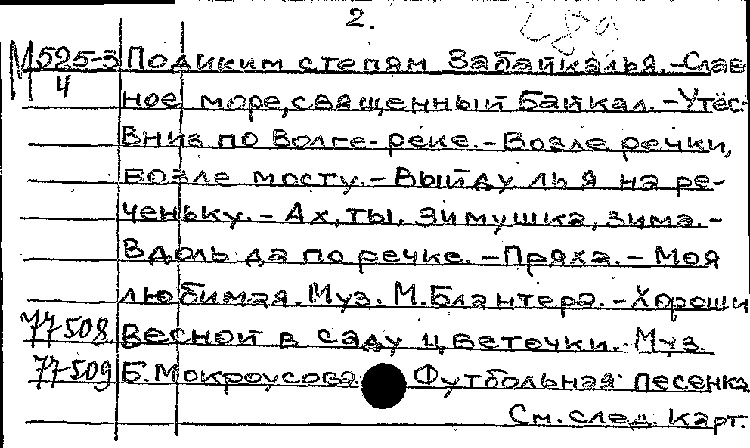 2.
М525-3 По диким степям Забайкалья. - Слав-
4 ное море, священный Байкал. - Утёс.-
Вниз по Волге-реке. - Возле речки,
возле мосту. - Выйду ль я на ре-
ченьку. - Ах, ты, зимушка, зима. -
Вдоль да по речке. - Пряха. - Моя
любимая. Муз. М. Блантера. - Хороши
77508 весной в саду цветочки. Муз.
77509 Б. Мокроусова Футбольная песенка
См. след. карт.